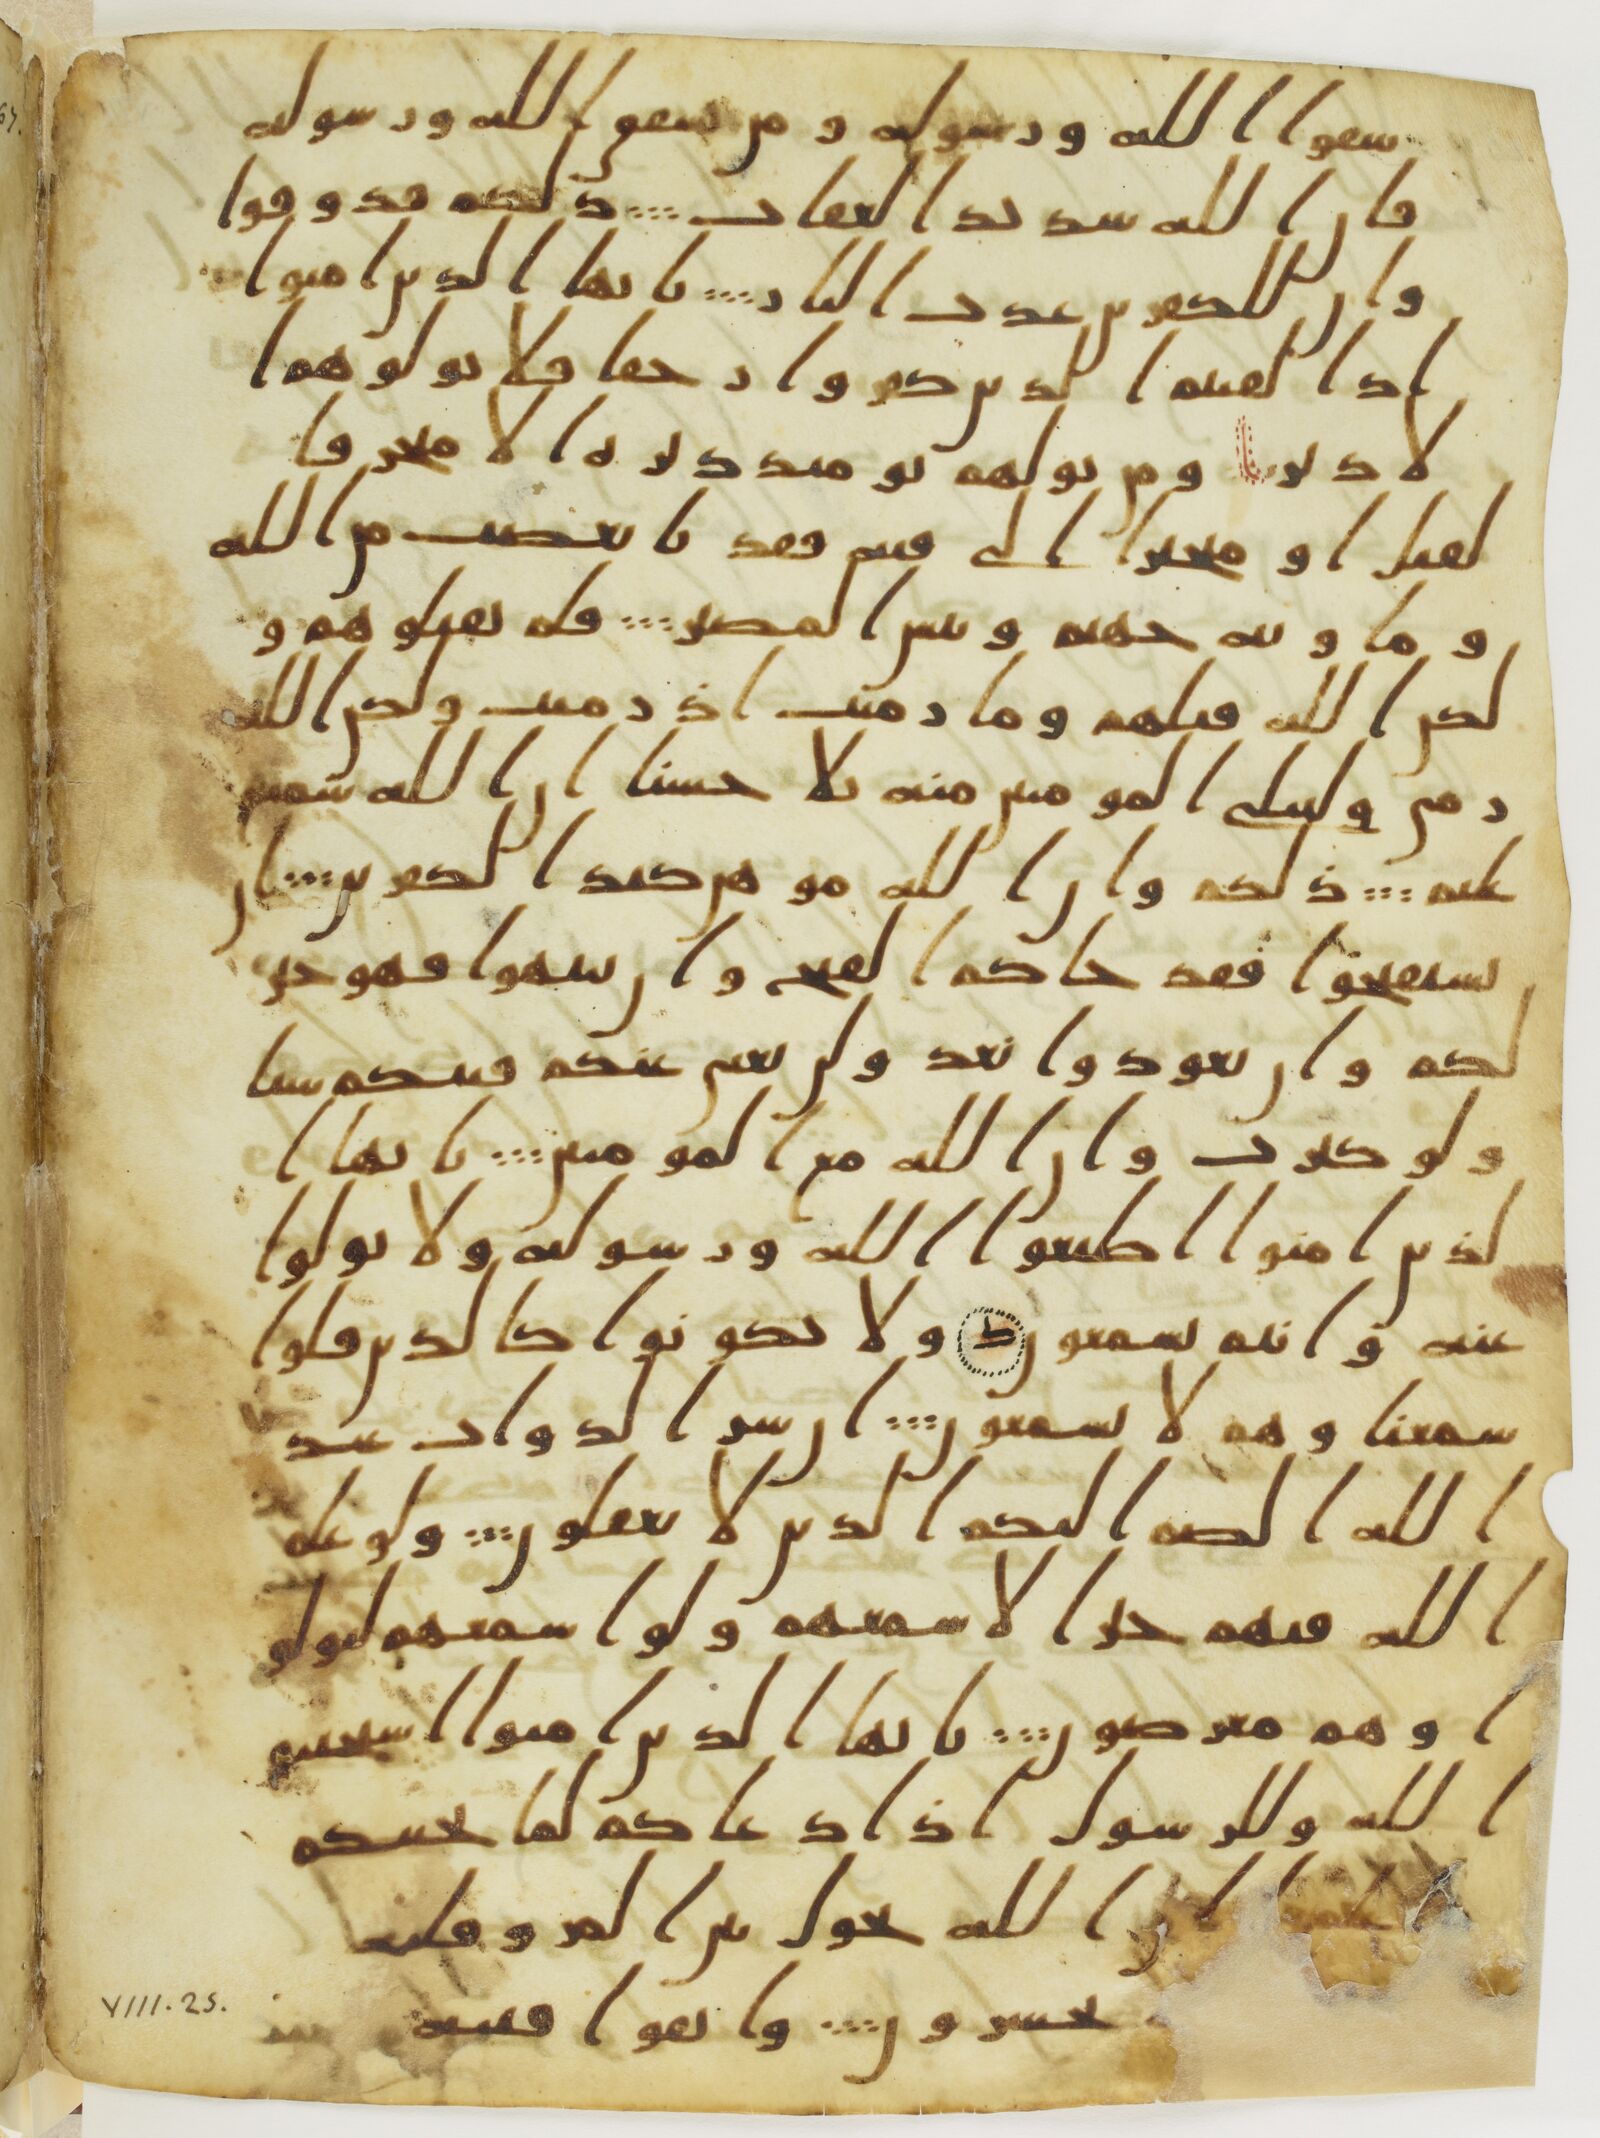 شقوا الله ورسوله ومن يشقق الله ورسوله
فان الله شديد العقاب ذلكم فذوقوا
وان للكفرين عذب النار يايها الذين امنوا
اذا لقيتم الذين كفروا زحفا فلا تولوهم ا
لادبر ومن يولهم يومئذ دبره الا متحرفا
لقتل او متحيزا الى فئة فقد با بغضب من الله
وماويه جهنم وبئس المصير فلم تقتلوهم و
لكن الله قتلهم وما رميت اذ رميت ولكن الله
رمى وليبلى المومنين منه بلا حسنا ان الله سميع
عليم ذلكم وان الله موهن كيد الكفرين ان
تستفتحوا فقد جاكم الفتح وان تنتهوا فهو خير
لكم وان تعودوا نعد ولن تغن عنكم فئتكم شيا
ولو كثرت وان الله مع المومنين يايها ا
لذين امنوا اطيعوا الله ورسوله ولا تولوا
عنه وانتم تسمعون ولا تكونوا كالذين قلوا
سمعنا وهم لا يسمعون ان شر الدواب عند
الله الصم البكم الذين لا يعقلون ولو علم
الله فيهم خيرا لاسمعهم ولو اسمعهم لتولو
ا وهم معرضون يايها الذين امنوا استجيبو
ا لله وللرسول اذا دعاكم لما يحييكم
ان الله يحول بين المر وقلبه
تحشرون واتقوا فتنة
VIII. 25.